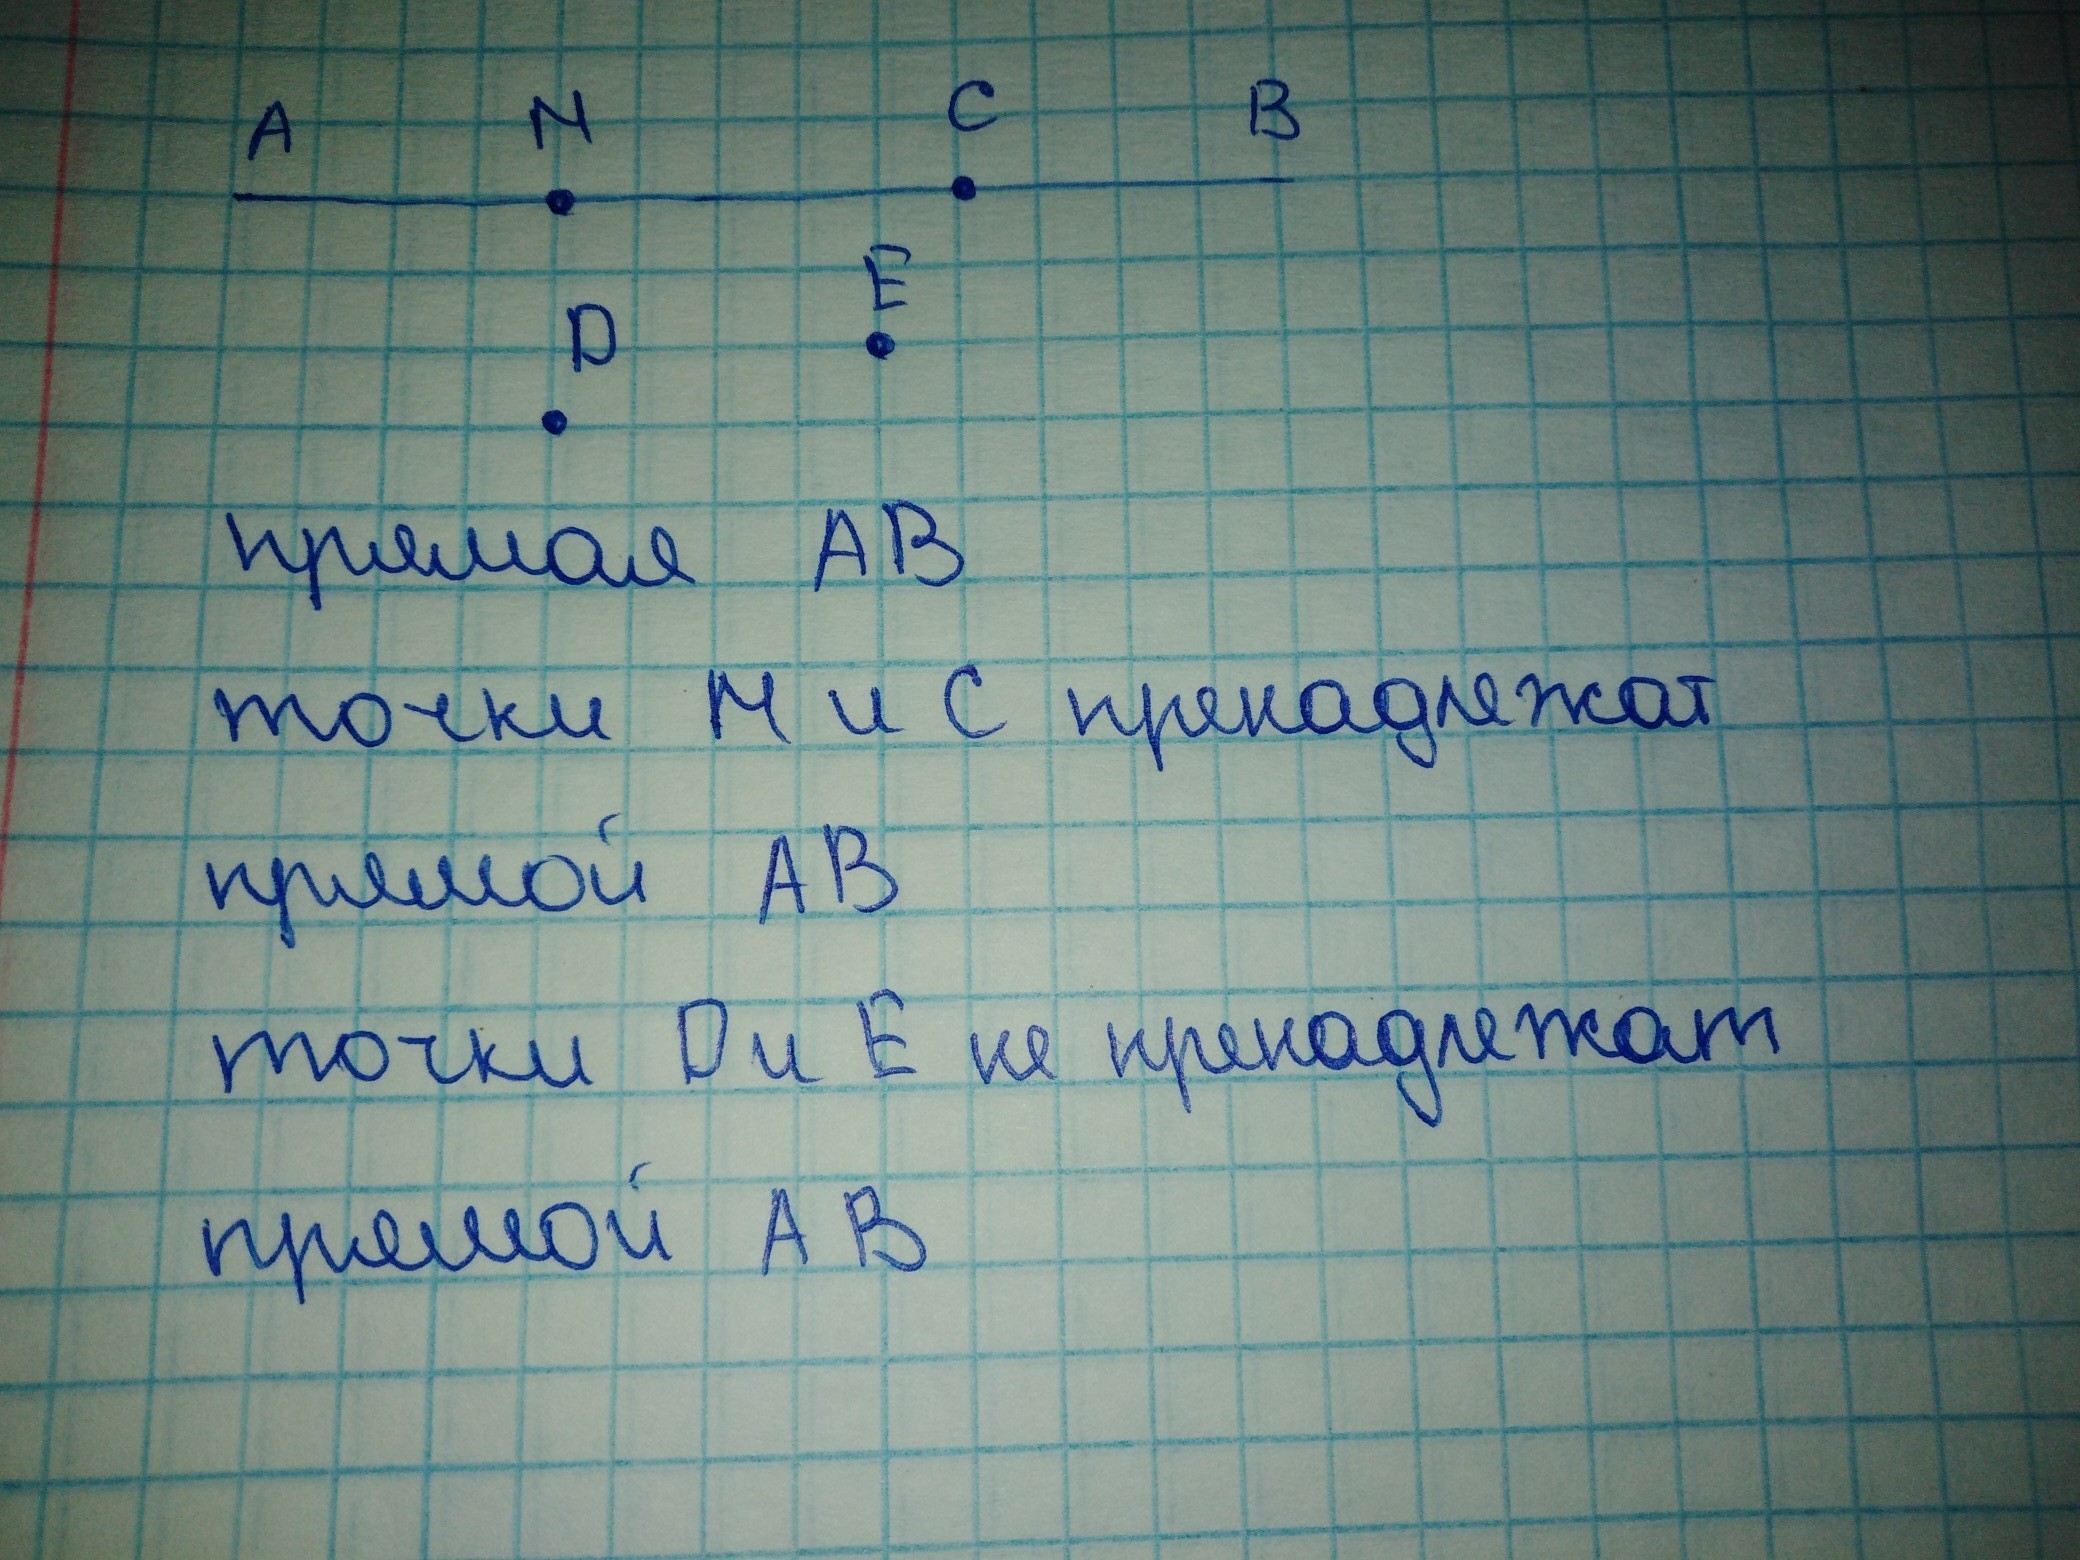 A M C B
E
D
прямая AB
точки M и C пренадлежат
прямой AB
точки D и E не пренадлежат
прямой AB